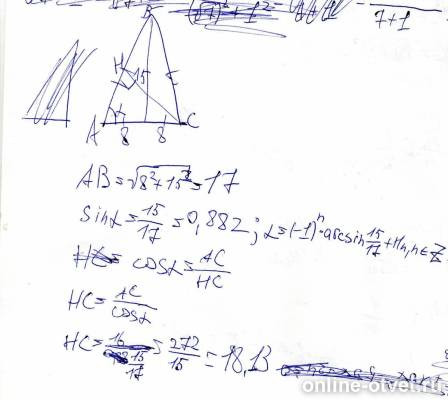 7+1
B
H 15
A 8 8 C
AB=√8²+15²=17
sinα=15/17=0,882; α=(-1)ⁿ·arcsin 15/17+πn, n∈Z
HC= cosα=AC/HC
HC=AC/cosα
HC=16/(15/17)=272/15=18,13
online-otvet.ru